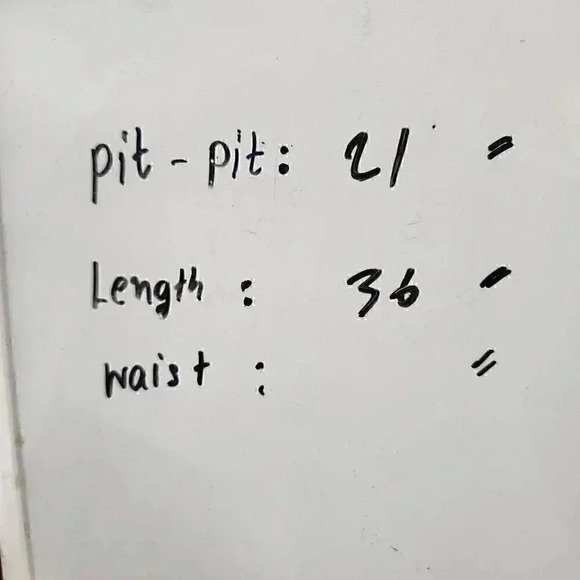 pit - pit: 21 "
Length : 36 "
waist : "